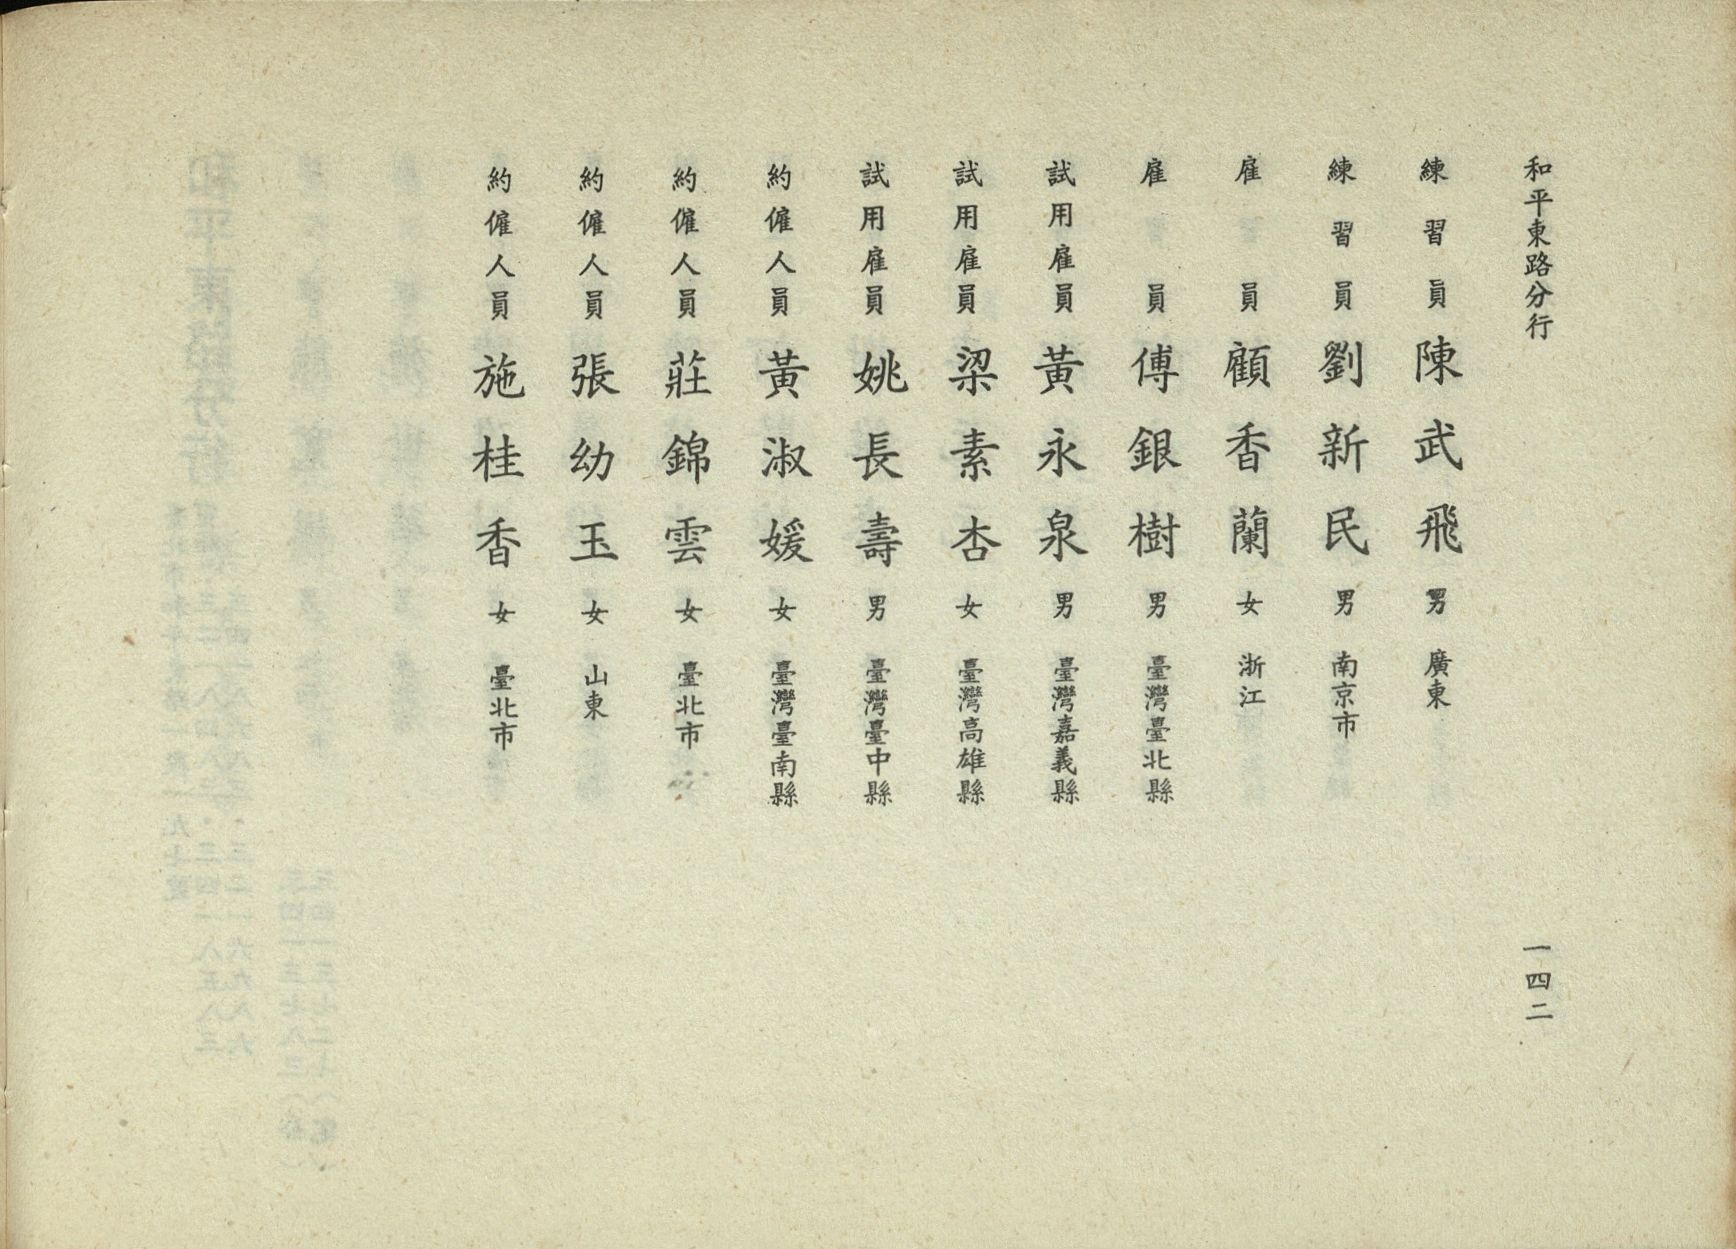 和平東路分行
一四二
練習員陳武飛男廣東
練習員劉新民男南京市
雇員顧香蘭女浙江
雇員傅銀樹男臺灣臺北縣
試用雇員黃永泉男臺灣嘉義縣
試用雇員梁素杏女臺灣高雄縣
試用雇員姚長壽男臺灣臺中縣
約僱人員黃淑媛女臺灣臺南縣
約僱人員莊錦雲女臺北市
約僱人員張幼玉女山東
約僱人員施桂香女臺北市